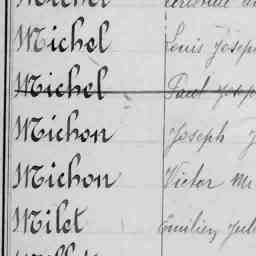 Michel Louis Joseph
Michel Paul Josep
Michon Joseph J
Michon Victor Ma
Milet Emilien Jul